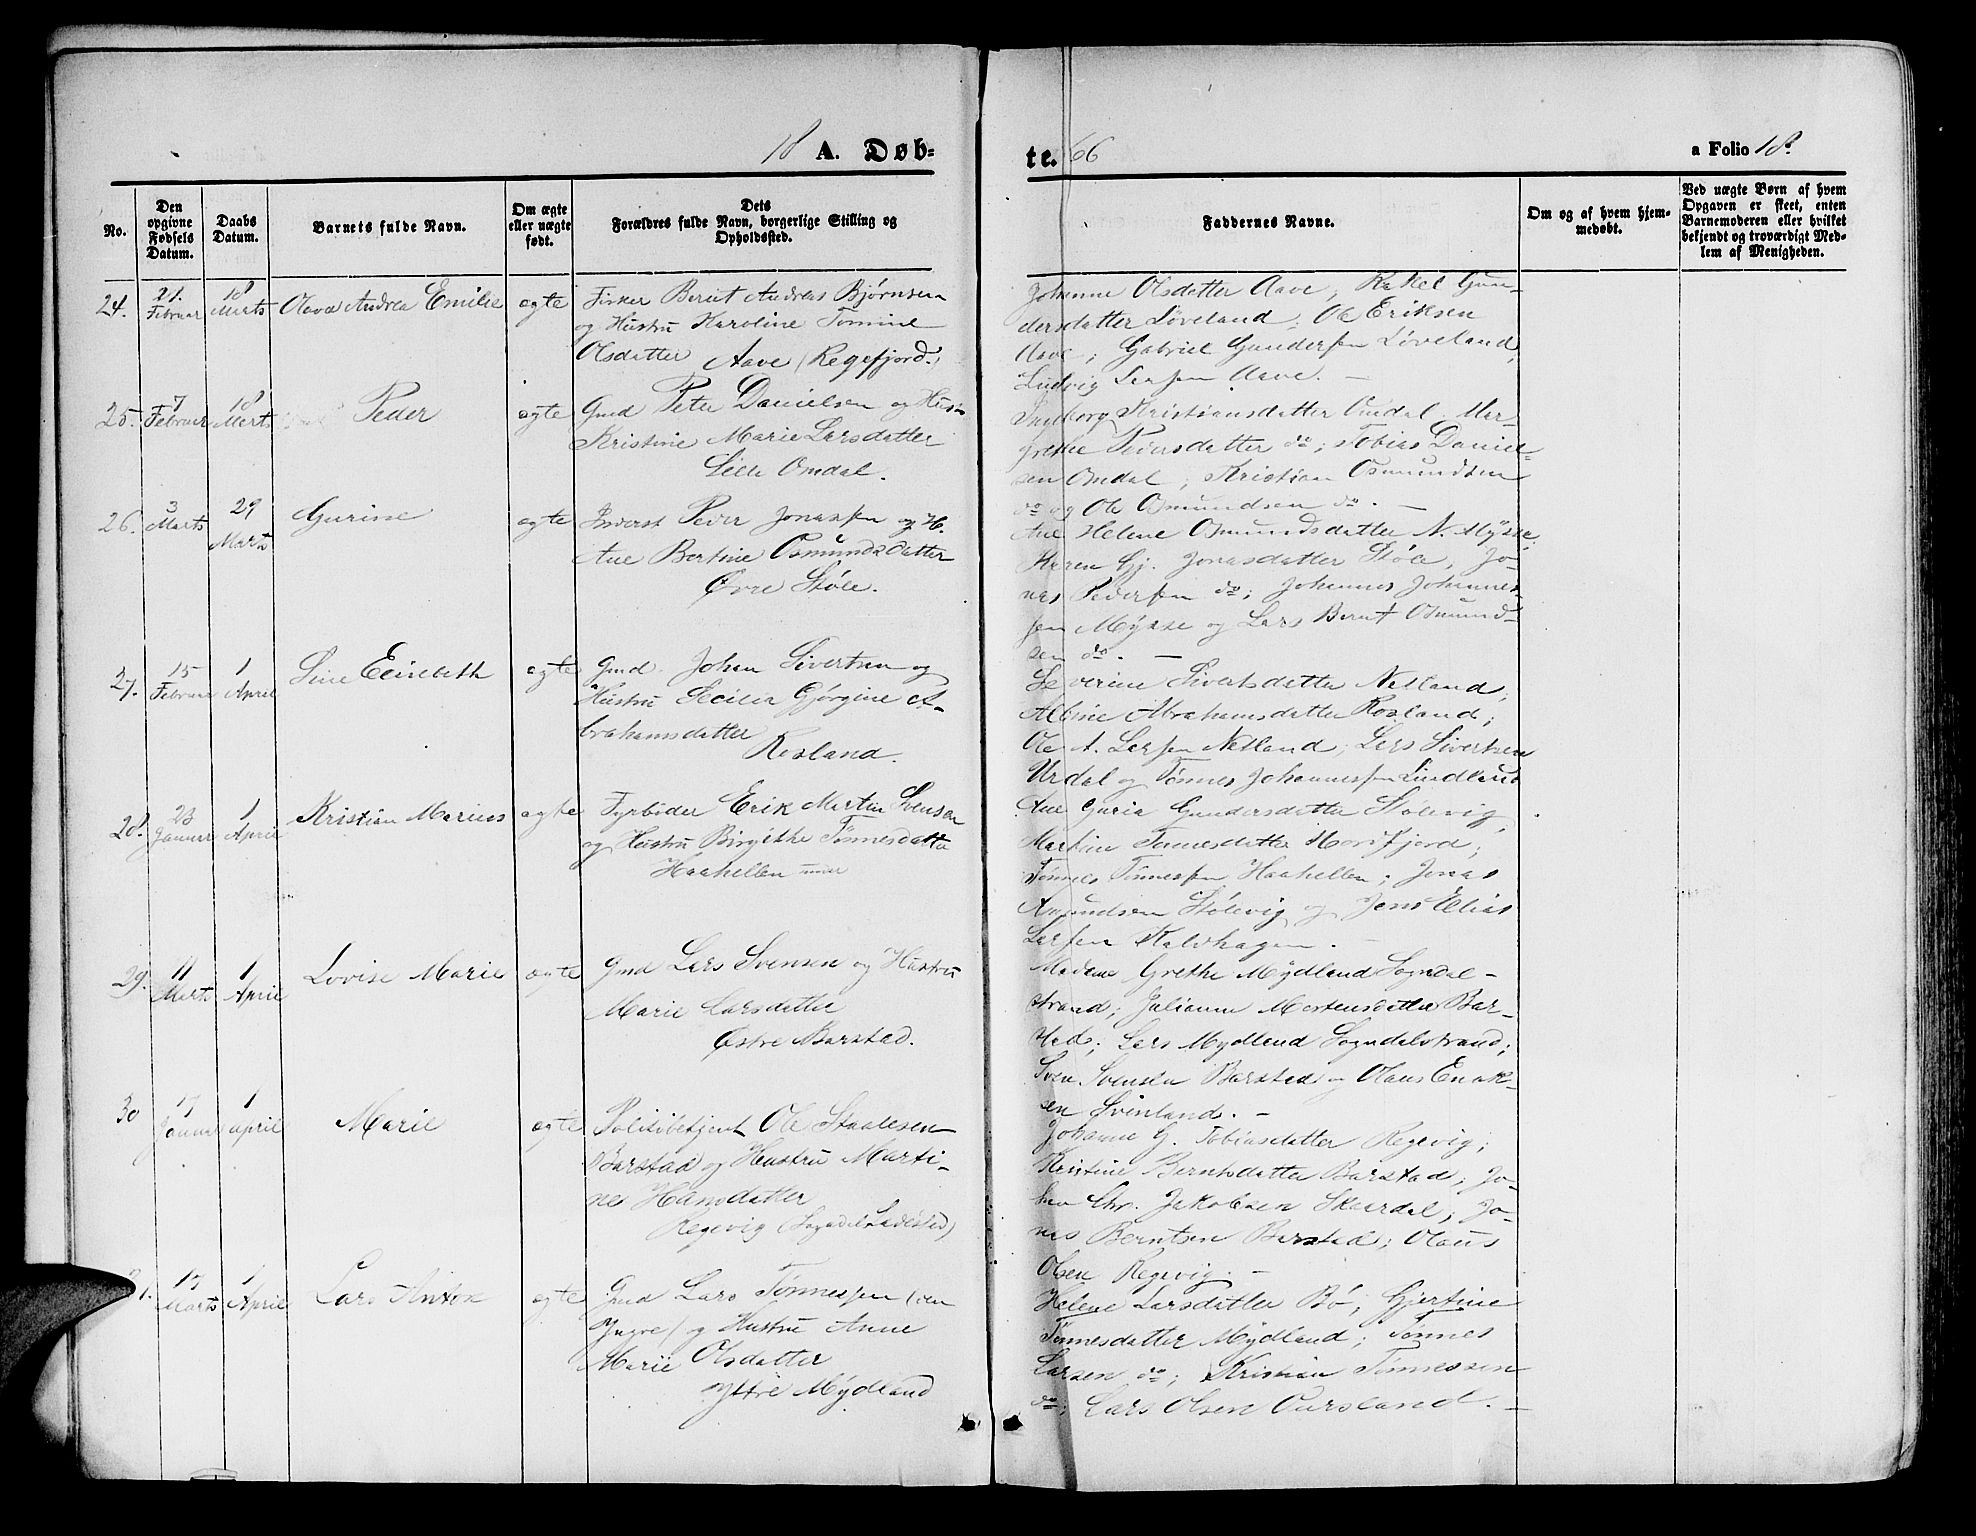 18 A. Døb-
No.
Den opgivne Fødsels Datum.
Daabs Datum.
Barnets fulde Navn.
Om ægte eller uægte født.
Dets Forældres fulde Navn, borgerlige Stilling og Opholdssted.
24.
21. Februar
18 Marts
Olava Andrea Emilie
ægte
Fisker Bernt Andreas Bjørnsen
og Hustru Karoline Tomine
Olsdatter Aave (Regefjord.)
25.
7 Februar
18 Marts
Peder
ægte
Gmd Peter Danielsen og Hustru
Kristine Marie Larsdatter
Lille Omdal.
26.
3 Marts
29 Marts
Gurine
ægte
Inderst Peder Jonassen og H.
Ane Bertine Osmundsdatter
Øvre Støle.
27.
15 Februar
1 April
Sine Elisabeth
ægte
Gmd. Johan Sivertsen og
Hustru Secilia Gjørgine A-
brahamsdatter
Rosland.
28.
23 Januar
1 April
Kristian Marius
ægte
Fyrbøder Erik Martin Svensen
og Hustru Birgithe Tønnesdatter
Haahellen
29.
11 Marts
1 April
Lovise Marie
ægte
Gmd Lars Svensen og Hustru
Marie Larsdatter
Østre Barstad.
30
17 Januar
1 April
Marie
ægte
Politibetjent Ole Staalesen
Barstad og Hustru Marti-
ne Hansdatter
Regevig (Sogndal Ladested)
31.
17 Marts
1 April
Lars Anton
ægte
Gmd Lars Tønnessen (den
Yngre) og Hustru Anne
Marie Olsdatter
Ytre Mydland
te. 66
a Folio 18.
Faddernes Navne.
Om og af hvem hjem-
medøbt.
Ved uægte Børn af hvem
Opgaven er skeet, enten
Barnemoderen eller hvilket
bekjendt og troværdigt Med-
lem af Menigheden.
Johanne Olsdatter Aave; Rakel Gun-
dersdatter Løveland; Ole Eriksen
Aave; Gabriel Gundersen Løveland,
Ludvig Larsen Aave. —
Ingeborg Kristiansdatter Omdal; Mar-
grethe Pedersdatter do; Tobias Daniel-
sen Omdal; Kristian Osmundsen
do og Ole Osmundsen do. —
Ane Helene Osmundsdatter N. Mysse,
Karen Gj. Jonasdatter Støle, Jo-
nas Pedersen do; Johannes Johannes-
sen Mysse og Lars Bernt Osmund-
sen do. —
Severine Sivertsdatter Netland,
Albine Abrahamsdatter Rosland;
Ole A. Larsen Netland; Lars Sivertsen
Urdal og Tønnes Johannessen Lindland
Ane Guria Gundersdatter Stølevig,
Martine Tønnesdatter
Tønnes Tønnessen Haahellen; Jonas
Amundsen Stølevig og Jens Elias
Larsen Kalvhagen. —
Madame Grethe Mydland Sogndal-
strand; Julianne Mortensdatter Bar-
stad; Lars Mydland Sogndalstrand;
Sven Svensen Barstad og Olaus Enok-
sen Svinland. —
Johanne G. Tobiasdatter Regevig;
Kristine Berntsdatter Barstad; Jo-
han Chr. Jakobsen Skaardal; Jo-
nas Berntsen Barstad; Olaus
Olsen Regevig. —
Helene Larsdatter Bø; Gjertine
Tønnesdatter Mydland; Tønnes
Larsen do; Kristian Tønnessen
do; Lars Olsen Oursland. —